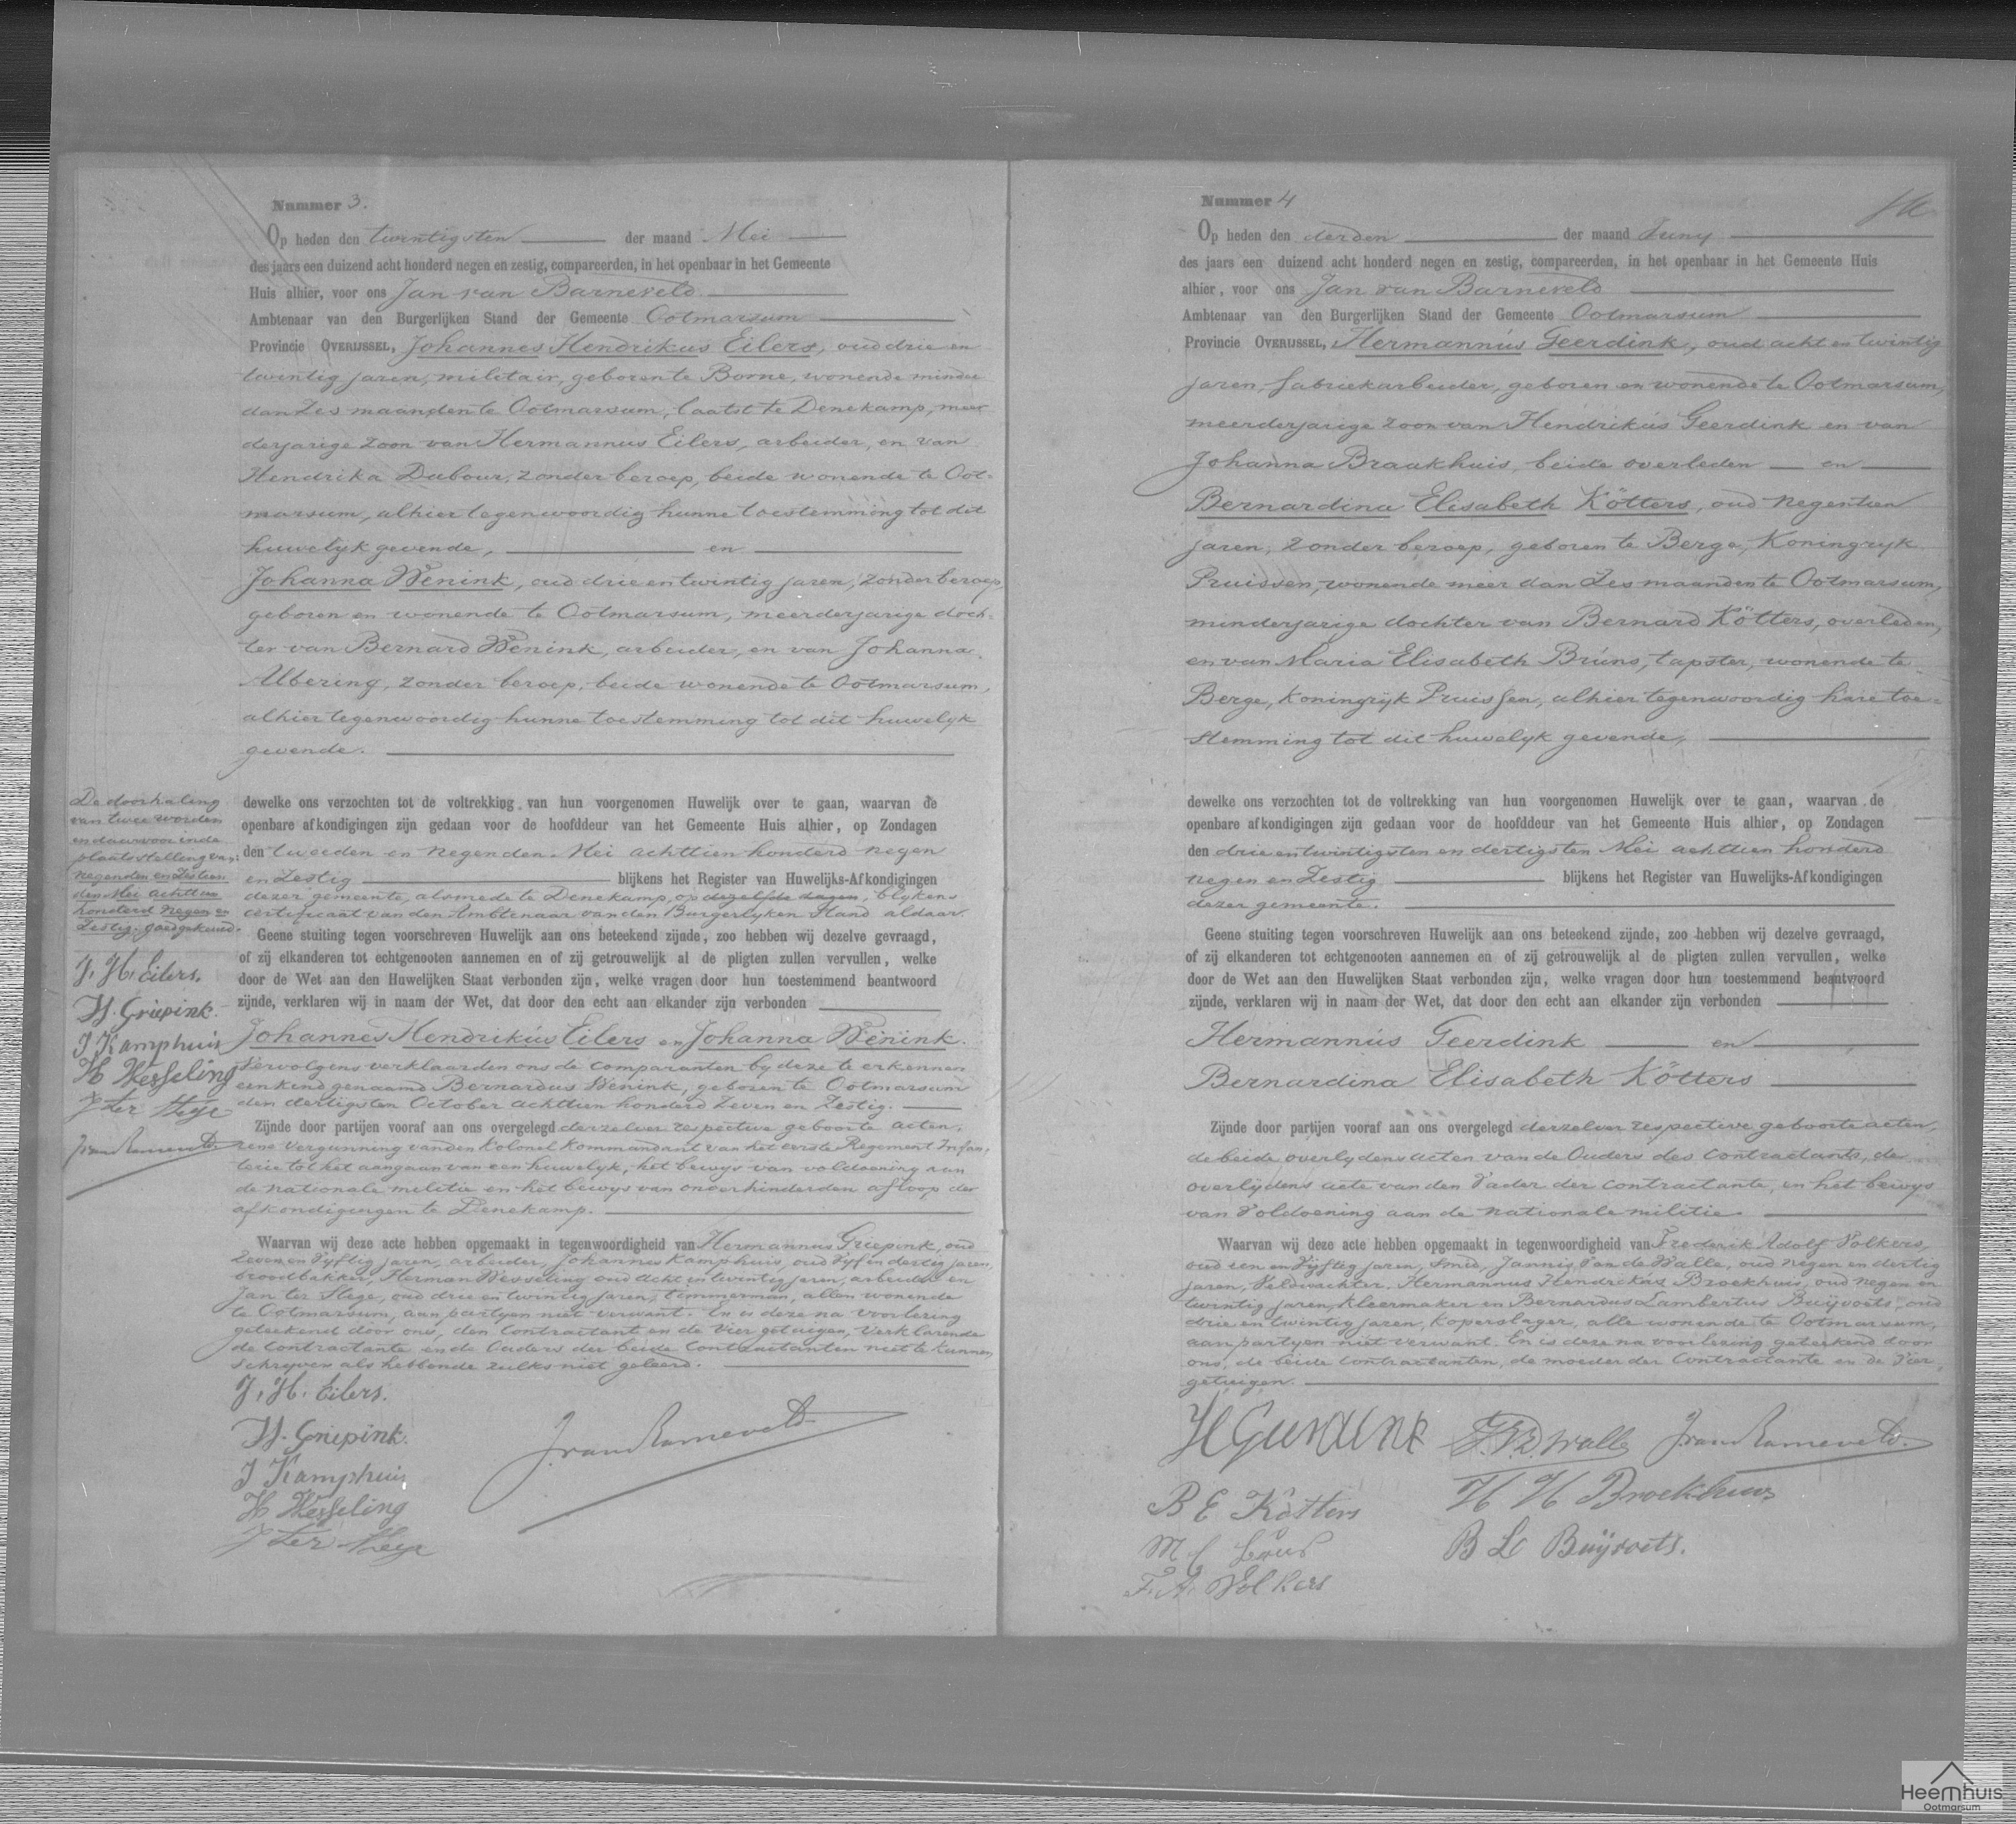 Nummer 3.
Op heden den twintigsten der maand Mei
des jaars een duizend acht honderd negen en zestig, compareerden, in het openbaar in het Gemeente
Huis alhier, voor ons Jan van Barneveld
Ambtenaar van den Burgerlijken Stand der Gemeente Ootmarsum
Provincie OVERIJSSEL, Johannes Hendrikus Eilers, oud drie en
twintig jaren, militair, geboren te Borne, wonende minder
dan Zes maanden te Ootmarsum, laatst te Denekamp, meer
derjarige zoon van Hermannus Eilers, arbeider, en van
Hendrika Dubour, zonder beroep, beide wonende te Oot-
marsum, alhier tegenwoordig hunne toestemming tot dit
huwelijk gevende, en
Johanna Wenink, oud drie en twintig jaren, zonder beroep,
geboren en wonende te Ootmarsum, meerderjarige doch-
ter van Bernard Wenink, arbeider, en van Johanna
Albering, zonder beroep, beide wonende te Ootmarsum,
alhier tegenwoordig hunne toestemming tot dit huwelijk
gevende.
dewelke ons verzochten tot de voltrekking van hun voorgenomen Huwelijk over te gaan, waarvan de
openbare afkondigingen zijn gedaan voor de hoofddeur van het Gemeente Huis alhier, op Zondagen
den tweeden en negenden Mei achttien honderd negen
en Zestig blijkens het Register van Huwelijks-Afkondigingen
dezer gemeente, alsmede te Denekamp, op dezelfde dagen, blijkens
certificaat van den Ambtenaar van den Burgerlyken Stand aldaar.
Geene stuiting tegen voorschreven Huwelijk aan ons beteekend zijnde, zoo hebben wij dezelve gevraagd,
of zij elkanderen tot echtgenooten aannemen en of zij getrouwelijk al de pligten zullen vervullen, welke
door de Wet aan den Huwelijken Staat verbonden zijn, welke vragen door hun toestemmend beantwoord
zijnde, verklaren wij in naam der Wet, dat door den echt aan elkander zijn verbonden
Johannes Hendrikus Eilers en Johanna Wenink.
Vervolgens verklaarden ons de comparanten by deze te erkennen
een kind genaamd Bernardus Wenink, geboren te Ootmarsum
den dertigsten October achttien honderd Zeven en Zestig.
Zijnde door partijen vooraf aan ons overgelegd derzelver respective geboorte acten,
eene vergunning van den Kolonel Kommandant van het eerste Regement Infan-
terie tot het aangaan van een huwelyk, het bewys van voldoening aan
de nationale militie en het bewys van onverhinderden afloop der
afkondigingen te Denekamp.
Waarvan wij deze acte hebben opgemaakt in tegenwoordigheid van Hermannus Griepink, oud
Zeven en Vyftig jaren, arbeider, Johannes Kamphuis, oud Vyf en dertig jaren,
broodbakker, Herman Wesseling oud acht en twintig jaren, arbeider en
Jan ter Stege, oud drie en twintig jaren, timmerman, allen wonende
te Ootmarsum, aan partyen niet verwant. En is deze na voorlezing
geteekend door ons, den Contractant en de Vier getuigen, verklarende
de contractante en de Ouders der beide Contractanten niet te kunnen
schryven als hebbende zulks niet geleerd.
J. H. Eilers.
H. Griepink.
J Kamphuis
H Wesseling
J ter Stege
J. van Barneveld
De doorhaling
van twee woorden
en daarvoor in de
plaatsstelling van:
negenden en Zestien
den Mei achttien
honderd negen en
Zestig. goedgekeurd.
J. H. Eilers.
H. Griepink.
J Kamphuis
H Wesseling
J ter Stege
J van Barneveld
Nummer 4
Op heden den derden der maand Juny
des jaars een duizend acht honderd negen en zestig, compareerden, in het openbaar in het Gemeente Huis
alhier, voor ons Jan van Barneveld
Ambtenaar van den Burgerlijken Stand der Gemeente Ootmarsum
Provincie OVERIJSSEL, Hermannus Geerdink, oud acht en twintig
jaren, fabriekarbeider, geboren en wonende te Ootmarsum,
meerderjarige zoon van Hendrikus Geerdink en van
Johanna Braakhuis, beide overleden en
Bernardina Elisabeth Kötters, oud negentien
jaren, zonder beroep, geboren te Berge, Koningryk
Pruissen, wonende meer dan Zes maanden te Ootmarsum,
minderjarige dochter van Bernard Kötters, overleden,
en van Maria Elisabeth Brüns, tapster, wonende te
Berge, Koningrijk Pruissen, alhier tegenwoordig hare toe-
stemming tot dit huwelyk gevende,
dewelke ons verzochten tot de voltrekking van hun voorgenomen Huwelijk over te gaan, waarvan de
openbare afkondigingen zijn gedaan voor de hoofddeur van het Gemeente Huis alhier, op Zondagen
den drie en twintigsten en dertigsten Mei achttien honderd
negen en Zestig blijkens het Register van Huwelijks-Afkondigingen
dezer gemeente.
Geene stuiting tegen voorschreven Huwelijk aan ons beteekend zijnde, zoo hebben wij dezelve gevraagd,
of zij elkanderen tot echtgenooten aannemen en of zij getrouwelijk al de pligten zullen vervullen, welke
door de Wet aan den Huwelijken Staat verbonden zijn, welke vragen door hun toestemmend beantwoord
zijnde, verklaren wij in naam der Wet, dat door den echt aan elkander zijn verbonden
Hermannus Geerdink en
Bernardina Elisabeth Kötters
Zijnde door partijen vooraf aan ons overgelegd derzelver respective geboorte acten,
de beide overlydens acten van de Ouders des Contractants, de
overlijdens acte van den Vader der Contractante, en het bewys
van Voldoening aan de nationale militie.
Waarvan wij deze acte hebben opgemaakt in tegenwoordigheid van Frederik Adolf Volkers,
oud een en Vyftig jaren, Smid, Jannis van de Walle, oud negen en dertig
jaren, Veldwachter, Hermannus Hendrikus Broekhuis, oud negen en
twintig jaren, Kleermaker en Bernardus Lambertus Buijvoets, oud
drie en twintig jaren, Koperslager, alle wonende te Ootmarsum,
aan partyen niet verwant. En is deze na voorlezing geteekend door
ons, de beide Contractanten, de moeder der Contractante en de Vier
getuigen.
J. Vd Walle J. van Barneveld.
B E Kötters H H Broekhuis
B L Buijvoets.
F. A. Volkers
Heemhuis
Ootmarsum